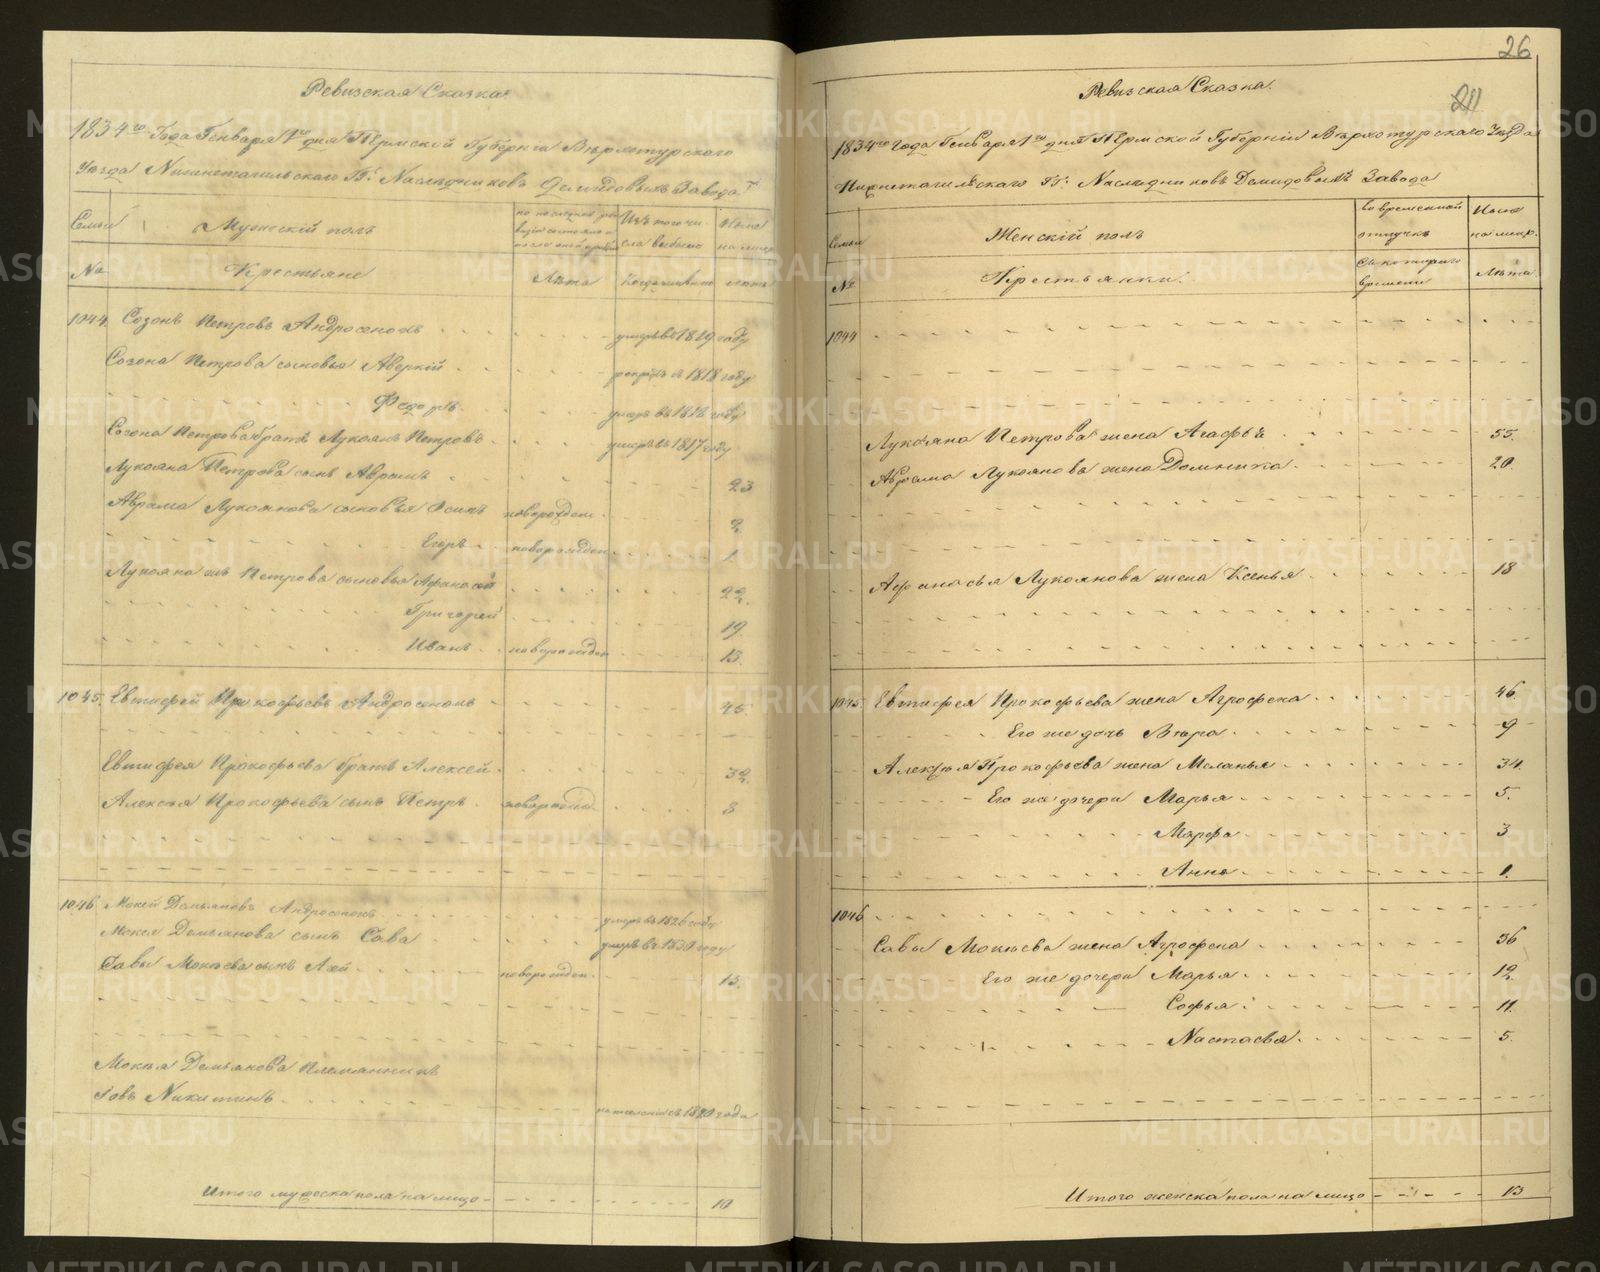 Ревизская Сказка.
1834го Года Генваря 1го дня Пермской Губернiи Верхотурскаго
Уезда Нижнетагильскаго Гг. Наследниковъ Демидовыхъ Завода
Семьи
Мужескiй полъ
Изъ того числа выбыло
Ныне на лицо
№
Крестьяне
Лета
Когда имянно
лета
1044 Созонъ Петровъ Андросенокъ умеръ въ 1829 году
Созона Петрова сыновья Аверкiй рекрутъ въ 1818 году
Федоръ умеръ въ 1818 году
Созона Петрова братъ Лукоянъ Петровъ умеръ въ 1817 году
Лукояна Петрова сынъ Аврамъ 23
Аврама Лукоянова сыновья Осипъ новорожден. 2
Егоръ новорожден 1
Лукояна жъ Петрова сыновья Афанасей 22
Григорей 19
Иванъ новорожден 13.
1045. Евтифей Прокофьевъ Андросенокъ 45
Евтифея Прокофьева братъ Алексей 32
Алексея Прокофьева сынъ Петръ новорожд 8
1046 Мокей Демьяновъ Андросенокъ умеръ въ 1826 году
Мокея Демьянова сынъ Сава умеръ въ 1830 году
Савы Мокеева сынъ новорожден. 15.
Мокея Демьянова племянникъ
Iовъ Никитинъ
Итого мужеска пола на лицо 10
26
Ревизская Сказка.
1834го Года Генваря 1го дня Пермской Губернiи Верхотурскаго Уезда
Нижнетагильскаго Гг. Наследниковъ Демидовыхъ Завода
Семьи
Женскiй полъ
во временной отлучке
Ныне на лицо.
№
Крестьянки.
Съ котораго времени
Лета
1044
Лукояна Петрова жена Агафья 55.
Аврама Лукоянова жена Домника 20.
Афанасья Лукоянова жена Ксенья 18
1045 Евтифея Прокофьева жена Агрофена 46
Его же дочь Вера 9
Алексея Прокофьева жена Меланья 34
Его же дочери Марья 5.
Марфа 3
Анна 1.
1046
Савы Мокеева жена Агрофена 36
Его же дочери Марья 12
Софья 11.
Настасья 5.
Итого женска пола на лицо 13
METRIKI.GASO-URAL.RU